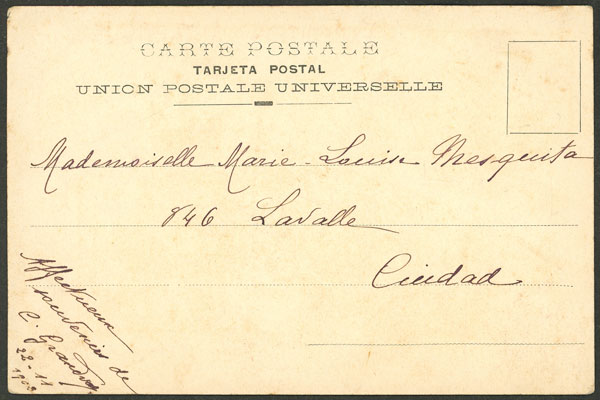 CARTE POSTALE
TARJETA POSTAL
UNION POSTALE UNIVERSELLE
Mademoiselle Marie-Louise Mesquita
846 Lavalle
Ciudad
Affectueux
souvenirs de
C.
22-11